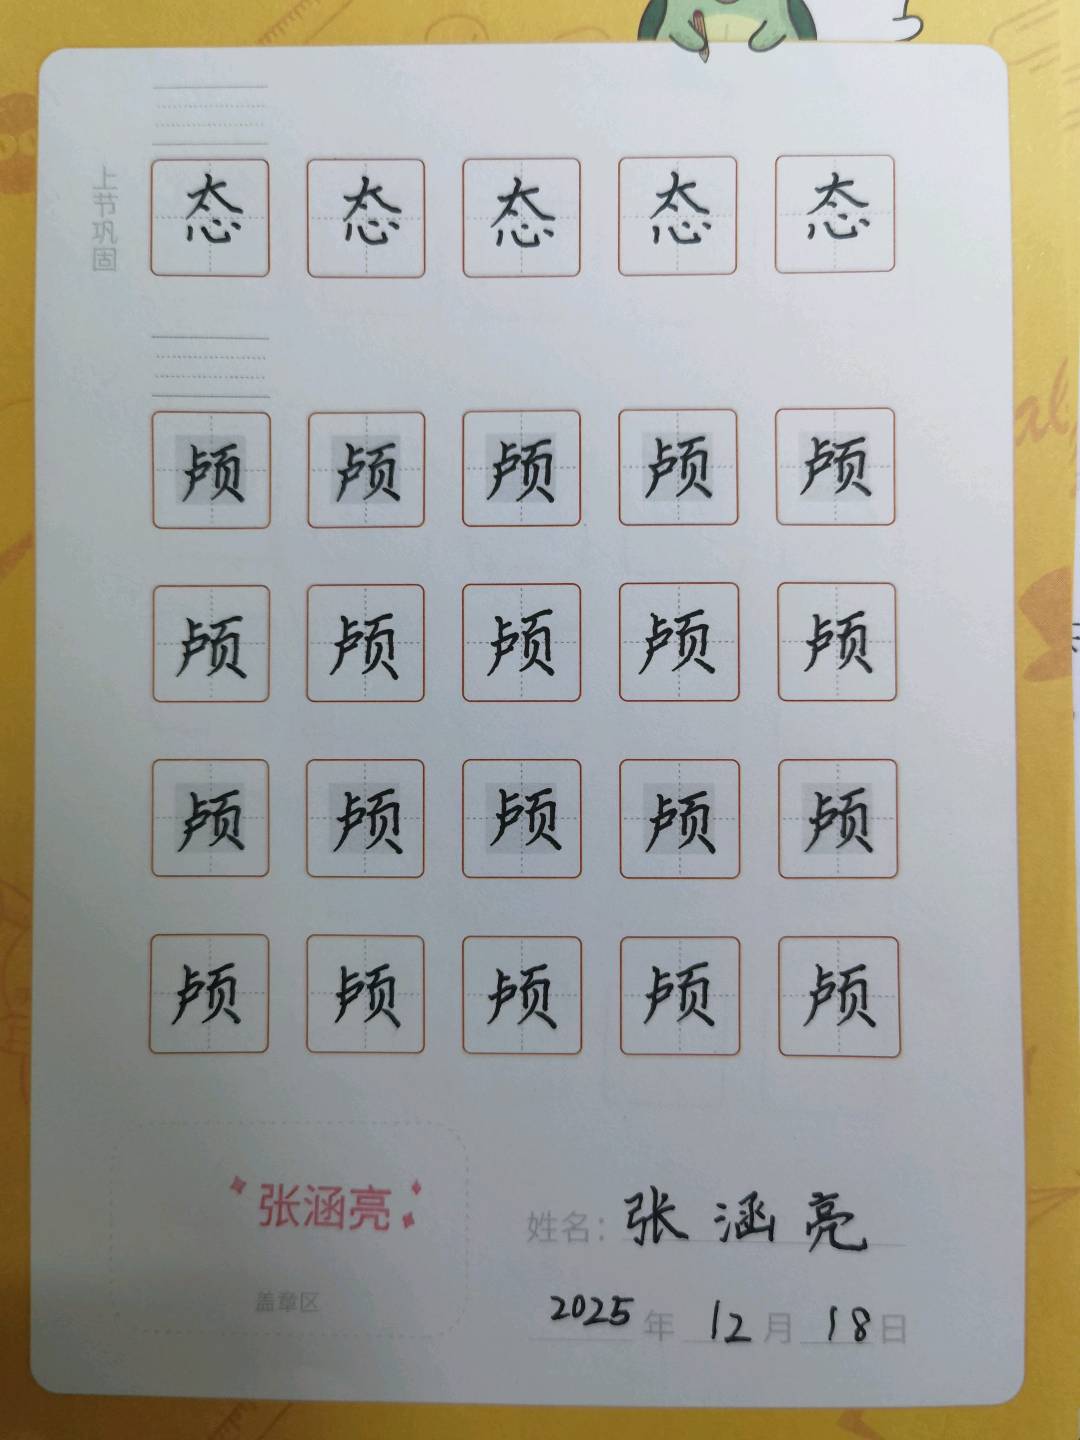 上节巩固
态 态 态 态 态
颅 颅 颅 颅 颅
颅 颅 颅 颅 颅
颅 颅 颅 颅 颅
颅 颅 颅 颅 颅
张涵亮
盖章区
姓名：张涵亮
2025年12月18日